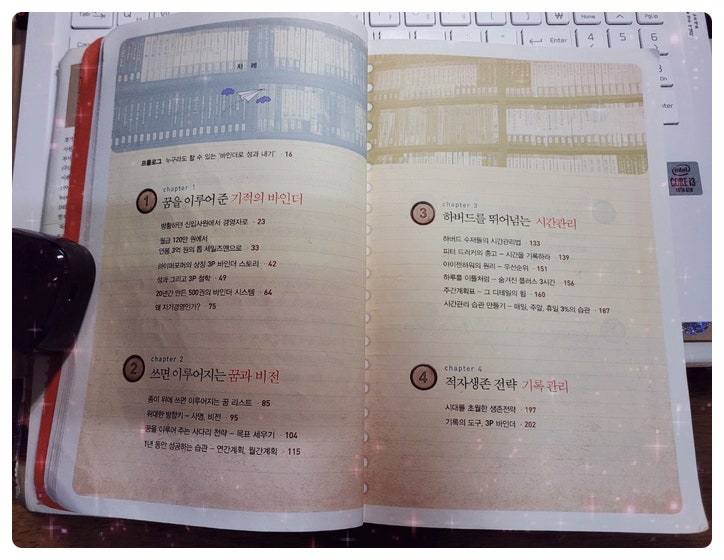 차 례
프롤로그 누구라도 할 수 있는 '바인더로 성과 내기' · 16
chapter 1
1 꿈을 이루어 준 기적의 바인더
방황하던 신입사원에서 경영자로 · 23
월급 120만 원에서
연봉 3억 원의 톱 세일즈맨으로 · 33
하이퍼포머의 상징 3P 바인더 스토리 · 42
성과 그리고 3P 철학 · 49
20년간 만든 500권의 바인더 시스템 · 64
왜 자기경영인가? · 75
chapter 2
2 쓰면 이루어지는 꿈과 비전
종이 위에 쓰면 이루어지는 꿈 리스트 · 85
위대한 방향키 – 사명, 비전 · 95
꿈을 이루어 주는 사다리 전략 – 목표 세우기 · 104
1년 동안 성공하는 습관 – 연간계획, 월간계획 · 115
chapter 3
3 하버드를 뛰어넘는 시간관리
하버드 수재들의 시간관리법 · 133
피터 드러커의 충고 – 시간을 기록하라 · 139
아이젠하워의 원리 – 우선순위 · 151
하루를 이틀처럼 – 숨겨진 플러스 3시간 · 156
주간계획표 – 그 디테일의 힘 · 160
시간관리 습관 만들기 – 매일, 주말, 휴일 3%의 습관 · 187
chapter 4
4 적자생존 전략 기록 관리
시대를 초월한 생존전략 · 197
기록의 도구, 3P 바인더 · 202
Caps Lock
Enter
Home
PgUp
4
5
6
2
3
intel
CORE i3
10TH GEN